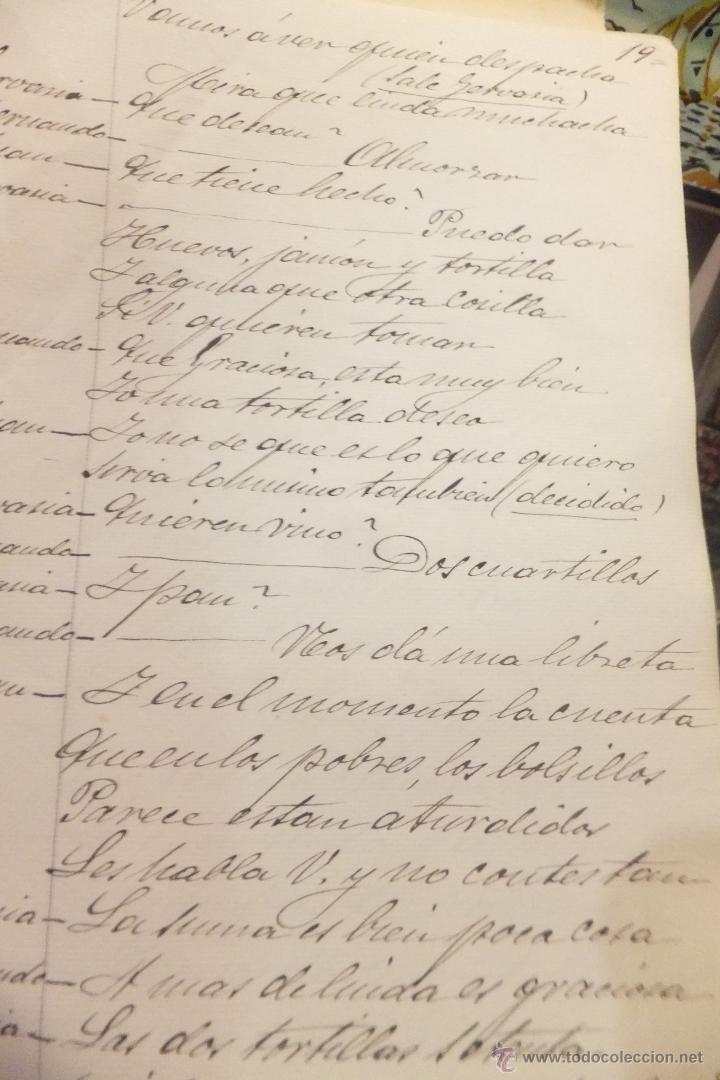 19=
Vamos á ver quien despacha
(Sale Gervasia)
Mira que linda muchacha
rvasia — Que desean?
ernando — Almorzar
uan — Que tiene hecho?
vasia — Puedo dar
Huevos, jamón y tortilla
Y alguna que otra cosilla
Si V. quieren tomar
nando — Que graciosa, esta muy bien
Yo una tortilla deseo
uan — Yo no se que es lo que quiero
Sirva lo mismo tambien (decidido)
vasia — Quieren vino?
nando — Dos cuartillos
asia — Y pan?
ando — Nos dá una libreta
an — Y en el momento la cuenta
Que en los pobres, los bolsillos
Parece estan aturdidos
Les habla V. y no contestan
ia — La suma es bien poca cosa
ndo — A mas de linda es graciosa
ia — Las dos tortillas
www.todocoleccion.net